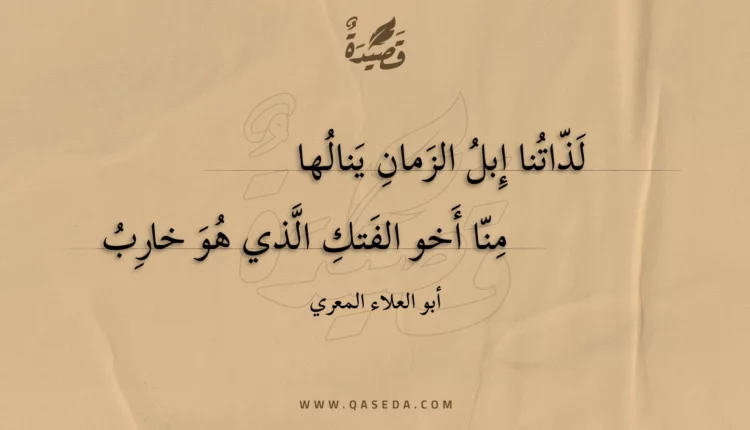 قَصِيدَةٌ
لَذّاتُنا إِبلُ الزَمانِ يَنالُها
مِنّا أَخو الفَتكِ الَّذي هُوَ خارِبُ
أبو العلاء المعري
WWW.QASEDA.COM